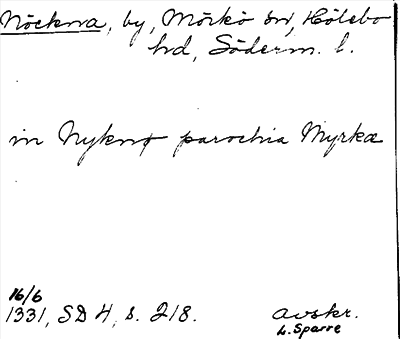 Nöckna, by, Mörkö sn, Hölebo
hd, Söderm. l.
in Nyknø parochia Myrkæ
16/6
1331, SD 4, s. 218.
avskr.
L. Sparre